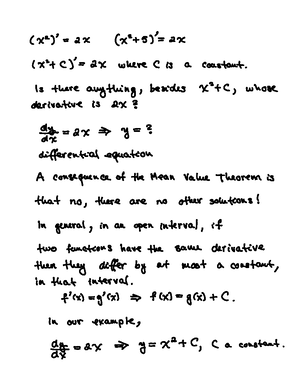 (x²)' = 2x (x²+5)' = 2x
(x²+C)' = 2x where C is a constant.
Is there anything, besides x²+C, whose
derivative is 2x?
dy/dx = 2x ⇒ y = ?
differential equation
A consequence of the Mean Value Theorem is
that no, there are no other solutions!
In general, in an open interval, if
two functions have the same derivative
then they differ by at most a constant,
in that interval.
f'(x) = g'(x) ⇒ f(x) = g(x) + C.
In our example,
dy/dx = 2x ⇒ y = x² + C, C a constant.